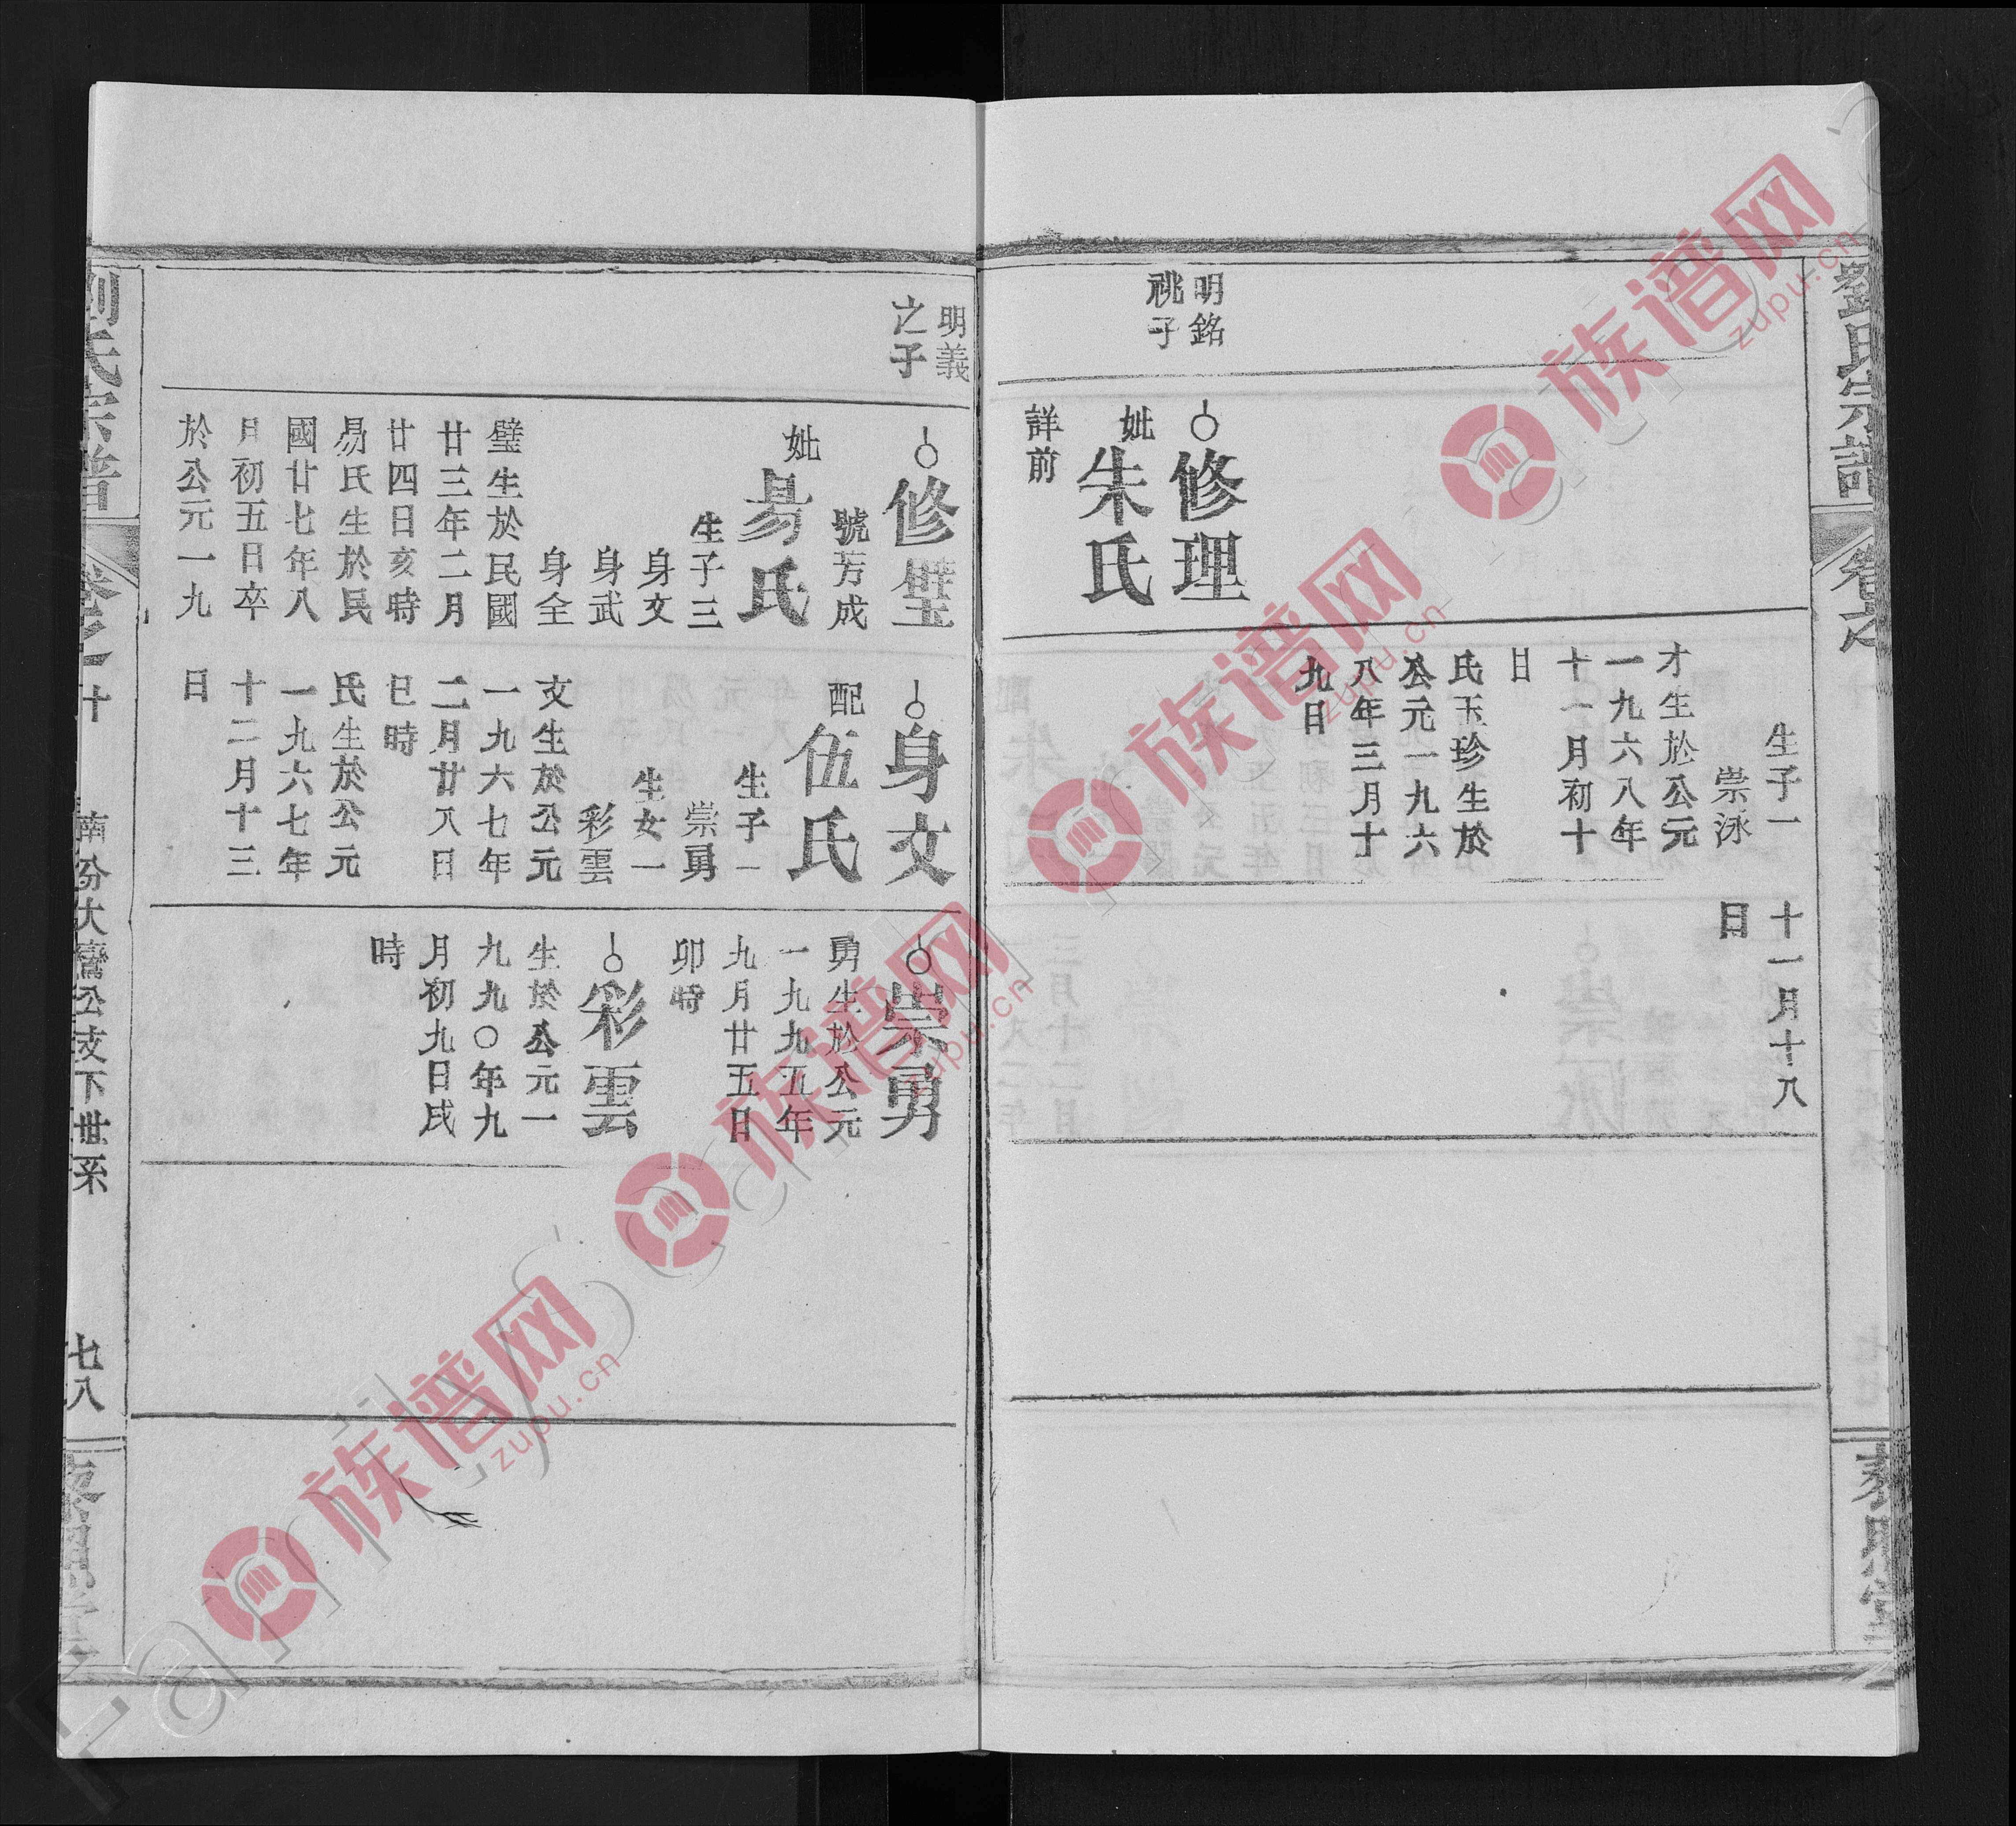 劉氏宗譜
卷之
明銘
祧子
修理
妣
朱氏
詳前
生子一
崇泳
才生於公元
一九六八年
十一月初十
日
氏玉珍生於
公元一九六
八年三月十
九日
十一月十八
日
明義
之子
修璧
號芳成
妣
易氏
生子三
身文
身武
身全
璧生於民國
廿三年二月
廿四日亥時
易氏生於民
國廿七年八
月初五日卒
於公元一九
身文
配
伍氏
生子一
崇勇
生女一
彩雲
文生於公元
一九六七年
二月廿八日
巳時
氏生於公元
一九六七年
十二月十三
日
崇勇
勇生於公元
一九九五年
九月廿五日
卯時
彩雲
生於公元一
九九〇年九
月初九日戌
時
劉氏宗譜
卷之十
南分大鸞公支下世系
七八
族谱网
zupu.cn
族谱网
zupu.cn
族谱网
zupu.cn
族谱网
zupu.cn